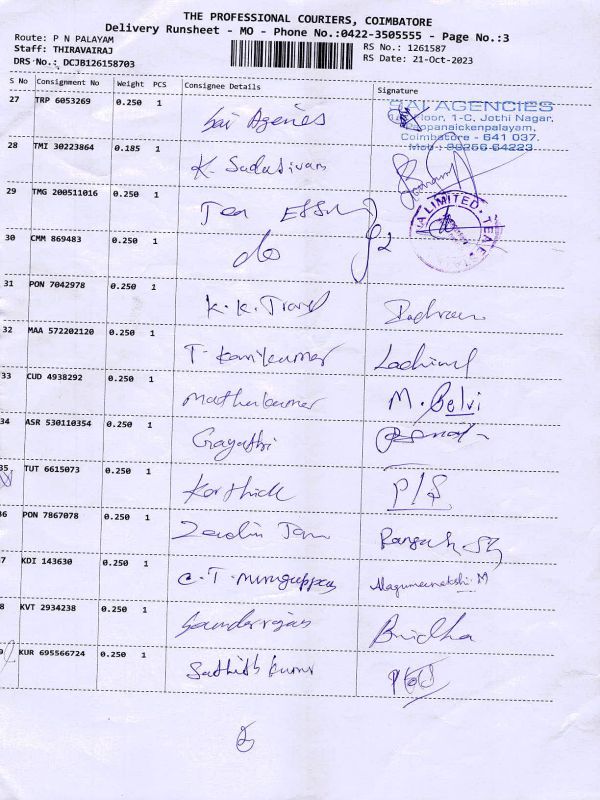 THE PROFESSIONAL COURIERS, COIMBATORE
Delivery Runsheet - MO - Phone No.:0422-3505555 - Page No.:3
Route: P N PALAYAM
Staff: THIRAVAIRAJ RS No.: 1261587
DRS No.: DCJB126158703 RS Date: 21-Oct-2023
S No Consignment No Weight PCS Consignee Details Signature
27 TRP 6053269 0.250 1 Sai Agencies
SAI AGENCIES
Floor, 1-C, Jothi Nagar,
Pappanaickenpalayam,
Coimbatore - 641 037.
28 TMI 30223864 0.185 1 K. Sadasivam
29 TMG 200511016 0.250 1 Tea
LIMITED
30 CMM 869483 0.250 1 do
31 PON 7042978 0.250 1 K. K. Travel
32 MAA 572202120 0.250 1 T. Ramkumar
33 CUD 4938292 0.250 1 Mathukumar M. Selvi
34 ASR 530110354 0.250 1 Gayathri
35 TUT 6615073 0.250 1 Karthick
PON 7867078 0.250 1
KDI 143630 0.250 1 C. T. Murugappan Alagumeenakshi M
KVT 2934238 0.250 1 Sounderrajan Bridha
KUR 695566724 0.250 1 Sathish Kumar